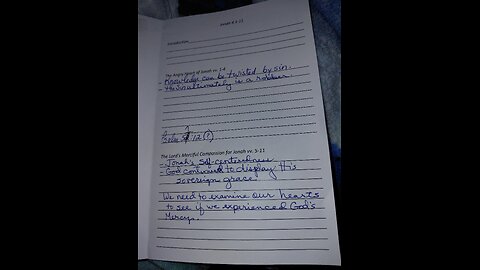 Jonah 4:1-11
Introduction
The Angry Heart of Jonah vv. 1-4
- Knowledge can be twisted by sin.
- The sin ultimately is a robber
12
The Lord's Merciful Compassion for Jonah vv. 5-11
- Jonah's self-centeredness
- God continued to display His
sovereign grace.
We need to examine our hearts
to see if we experienced God's
Mercy.